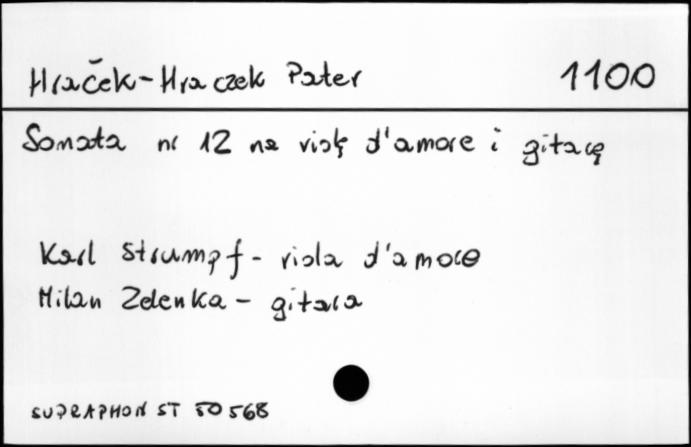 Hraček-Hraczek Pater 1100
Sonata nr 12 na violę d'amore i gitarę
Karl Strumpf - viola d'amore
Milan Zelenka - gitara
SUPRAPHON ST 50568